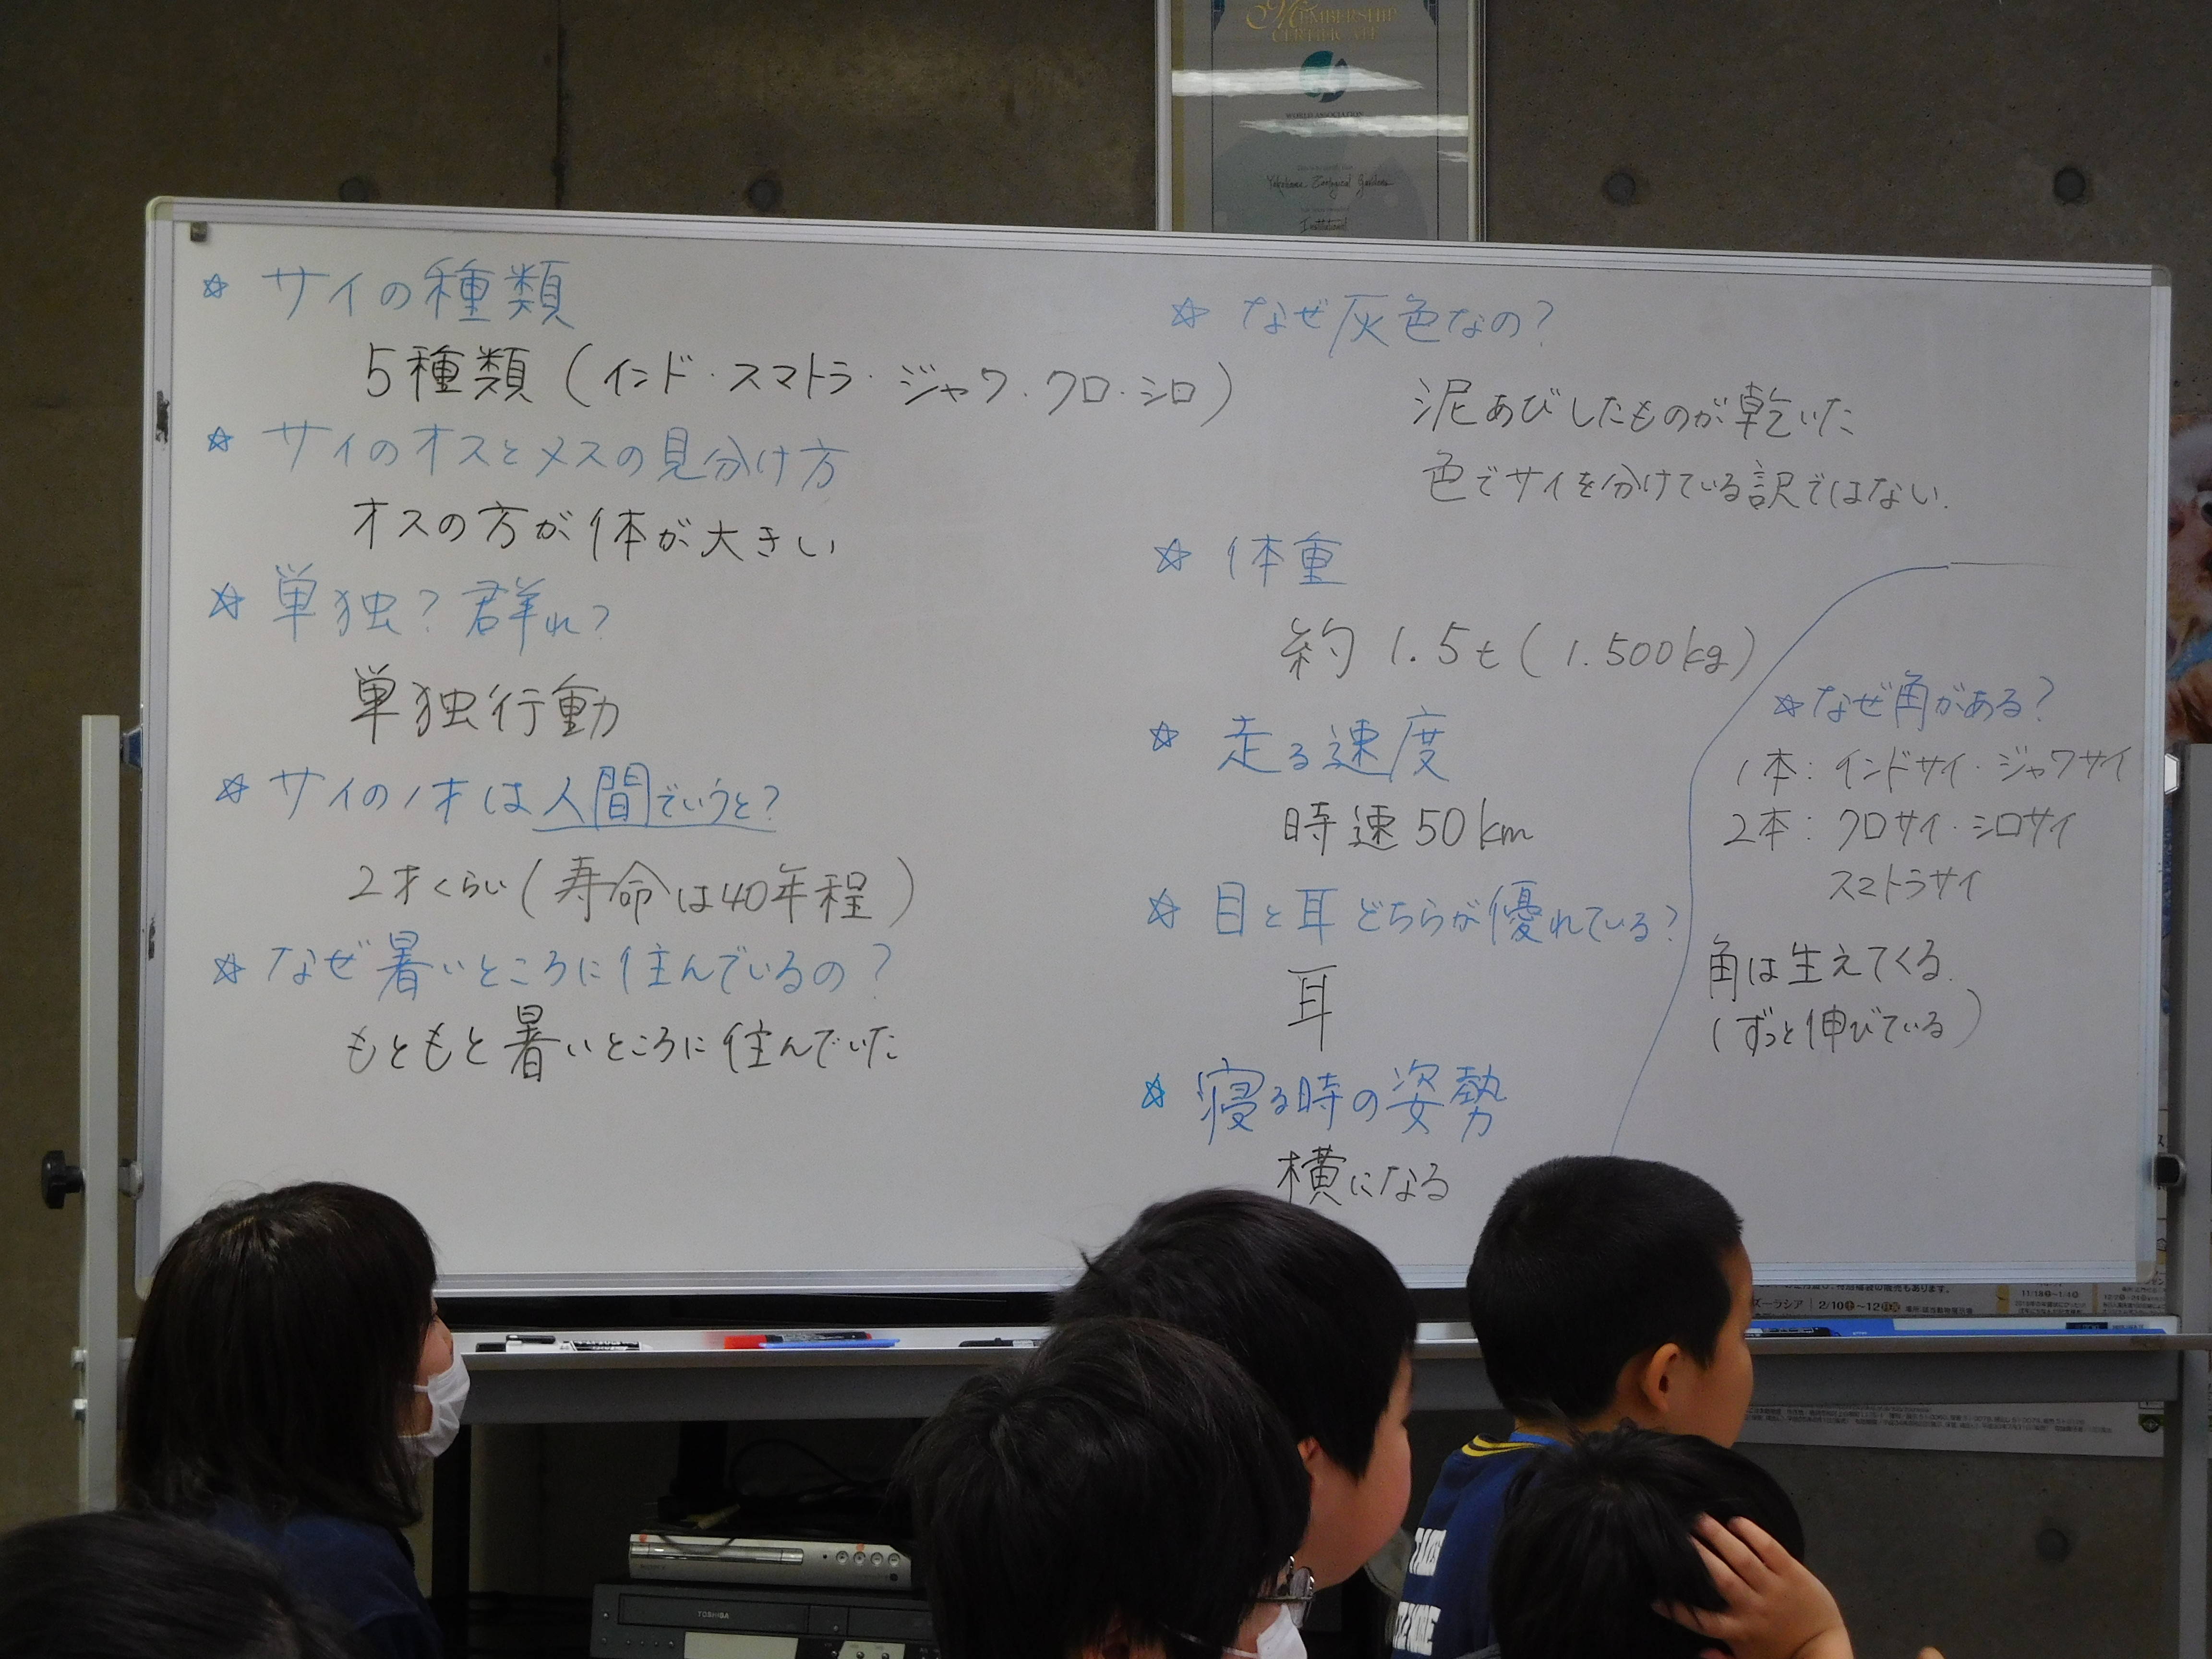 MEMBERSHIP
CERTIFICATE
WORLD ASSOCIATION
Yokohama Zoological Gardens
☆ サイの種類
5種類(インド・スマトラ・ジャワ・クロ・シロ)
☆ サイのオスとメスの見分け方
オスの方が体が大きい
☆ 単独?群れ?
単独行動
☆ サイの1才は人間でいうと?
2才くらい(寿命は40年程)
☆ なぜ暑いところに住んでいるの?
もともと暑いところに住んでいた
☆ なぜ灰色なの?
泥あびしたものが乾いた
色でサイを分けている訳ではない.
☆ 体重
約 1.5t(1.500kg)
☆ 走る速度
時速50km
☆ 目と耳どちらが優れている?
耳
☆ 寝る時の姿勢
横になる
☆なぜ角がある?
1本:インドサイ・ジャワサイ
2本:クロサイ・シロサイ
スマトラサイ
角は生えてくる.
(ずっと伸びている)
ズーラシア 2/10
TOSHIBA